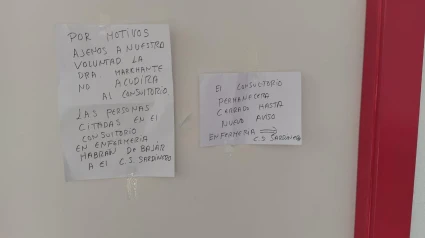 POR MOTIVOS
AJENOS A NUESTRA
VOLUNTAD LA
DRA. MARCHANTE
NO ACUDIRA
AL CONSULTORIO
LAS PERSONAS
CITADAS EN EL
CONSULTORIO
EN ENFERMERIA
HABRAN DE BAJAR
A EL C.S. SARDINERO
El CONSULTORIO
PERMANECERA
CERRADO HASTA
NUEVO AVISO
ENFERMERIA ⇒
C.S SARDINERO